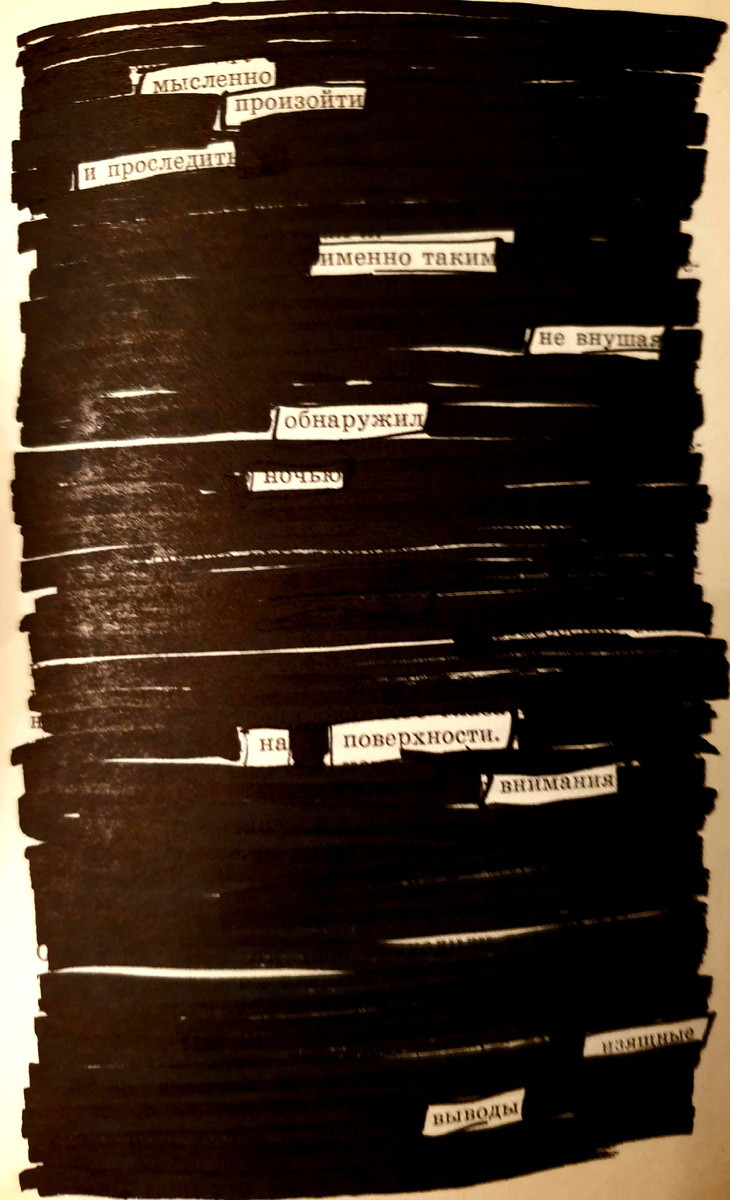 мысленно
произойти
и проследить
именно таким
не внушая
обнаружил
ночью
на поверхности.
внимания
изящные
выводы